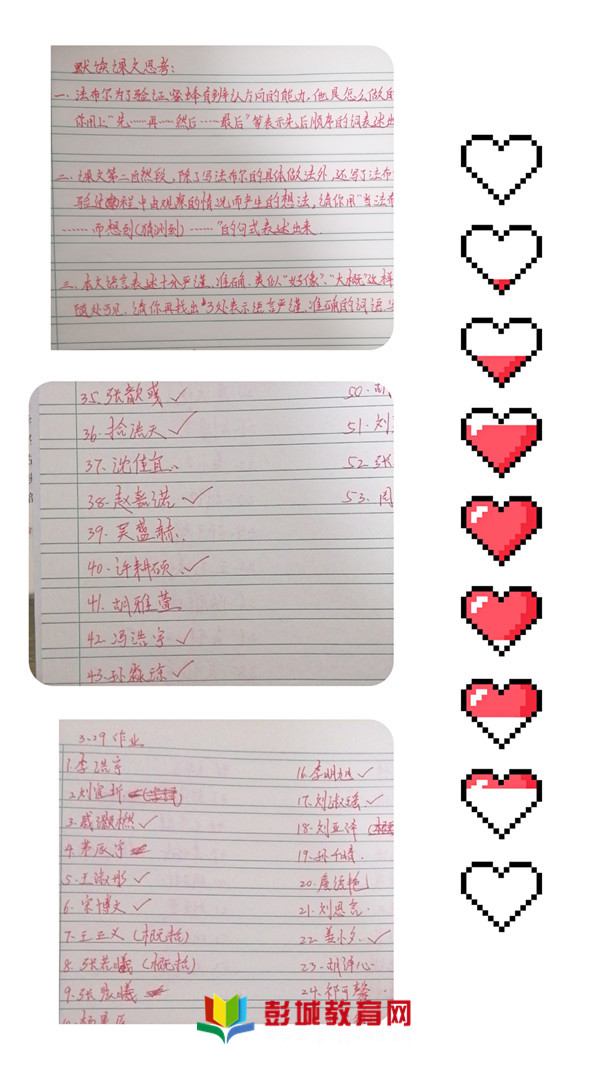 默读课文思考：
一、法布尔为了验证蜜蜂有辨认方向的能力，他是怎么做的
你用上“先……再……然后……最后”等表示先后顺序的词表述出
二、课文第二自然段，除了写法布尔的具体做法外，还写了法布
验过程中由观察的情况而产生的想法，请你用“当法布
……而想到(猜测到)……”的句式表述出来.
三、本文语言表述十分严谨、准确、类似“好像”、“大概”这样
随处可见，请你再找出3处表示语言严谨、准确的词语
35.张歆彧✓
50.
36.拾浩天✓
51.刘
37.沈佳宜
52.张
38.赵嘉诺✓
53.周
39.吴盛赫
40.许耕硕✓
41.胡雅萱
42.冯浩宇✓
43.孙淼琮✓
3.29作业
1.李浩宇
16.李明旭✓
2.刘宜昕
17.刘淑瑶✓
3.戚灏燃✓
18.刘亚泽(概
4.
19.孙千晴.
5.王淑彤✓
20.
6.宋博文✓
21.刘恩亮.
7.王正义(概括)
22.姜小夕✓
8.张若曦(概括)
23.胡译心
9.张
24.祁可馨.
彭城教育网